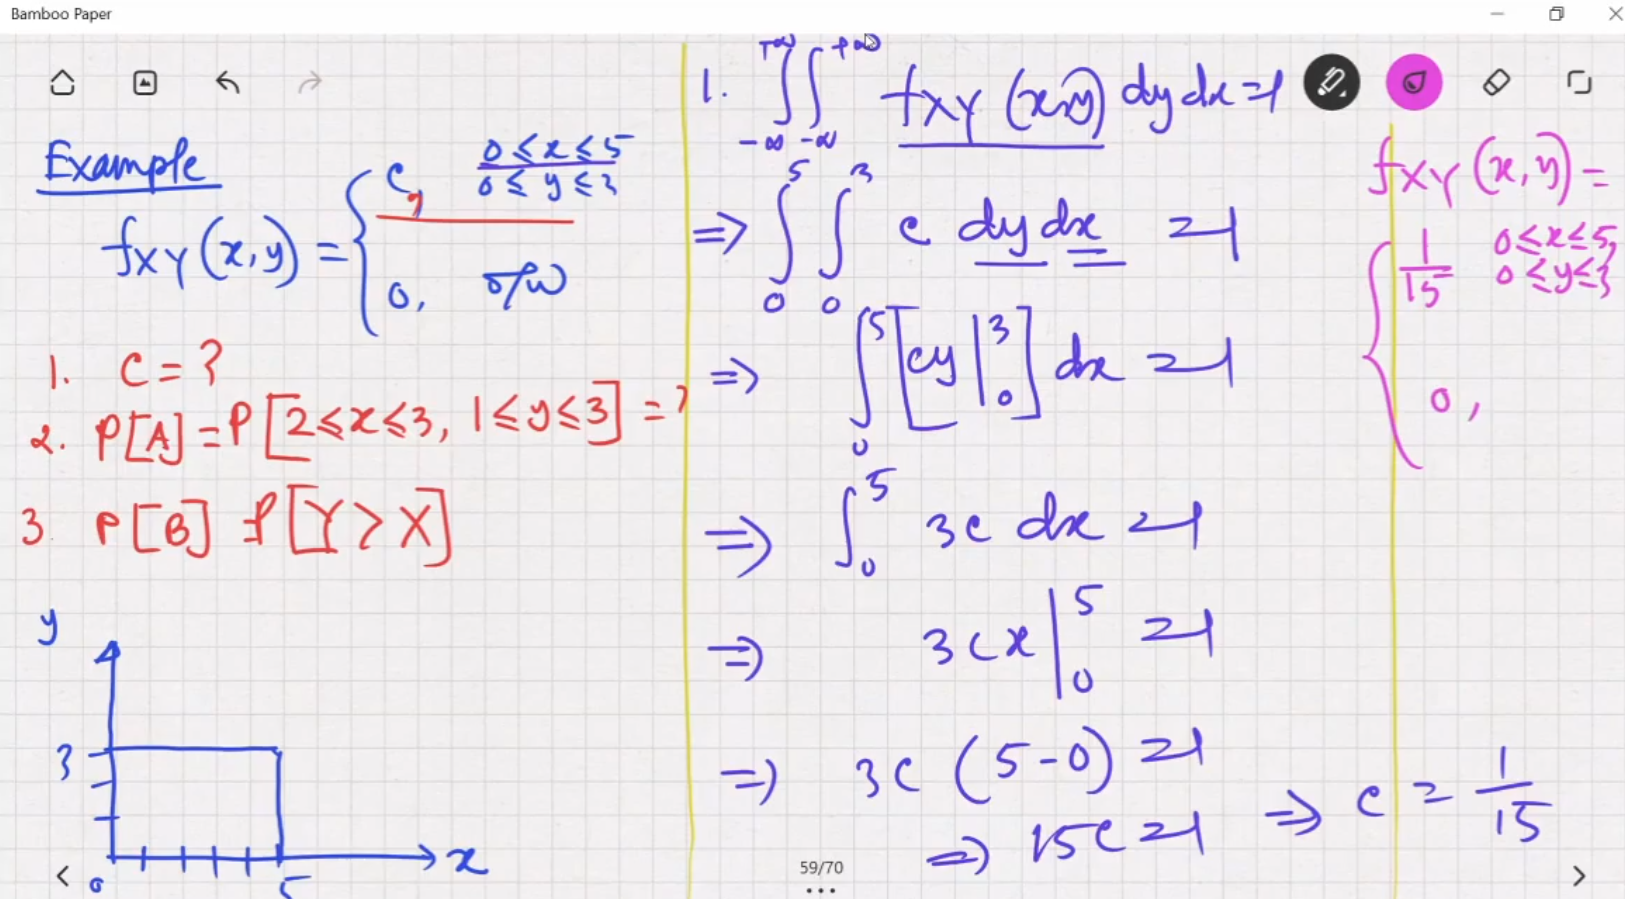 Bamboo Paper
Example
fXY(x,y) = { C, 0 ≤ x ≤ 5
0 ≤ y ≤ 3
0, o/w
1. C = ?
2. P[A] = P[2 ≤ x ≤ 3, 1 ≤ y ≤ 3] = ?
3. P[B] = P[Y > X]
y
3
0 5 x
1. ∫_{-∞}^{+∞} ∫_{-∞}^{+∞} fXY(x,y) dy dx = 1
=> ∫_0^5 ∫_0^3 c dy dx = 1
=> ∫_0^5 [cy |_0^3] dx = 1
=> ∫_0^5 3c dx = 1
=> 3cx |_0^5 = 1
=> 3c (5-0) = 1
=> 15c = 1 => c = 1/15
fXY(x,y) =
{ 1/15 0 ≤ x ≤ 5,
0 ≤ y ≤ 3
0,
59/70